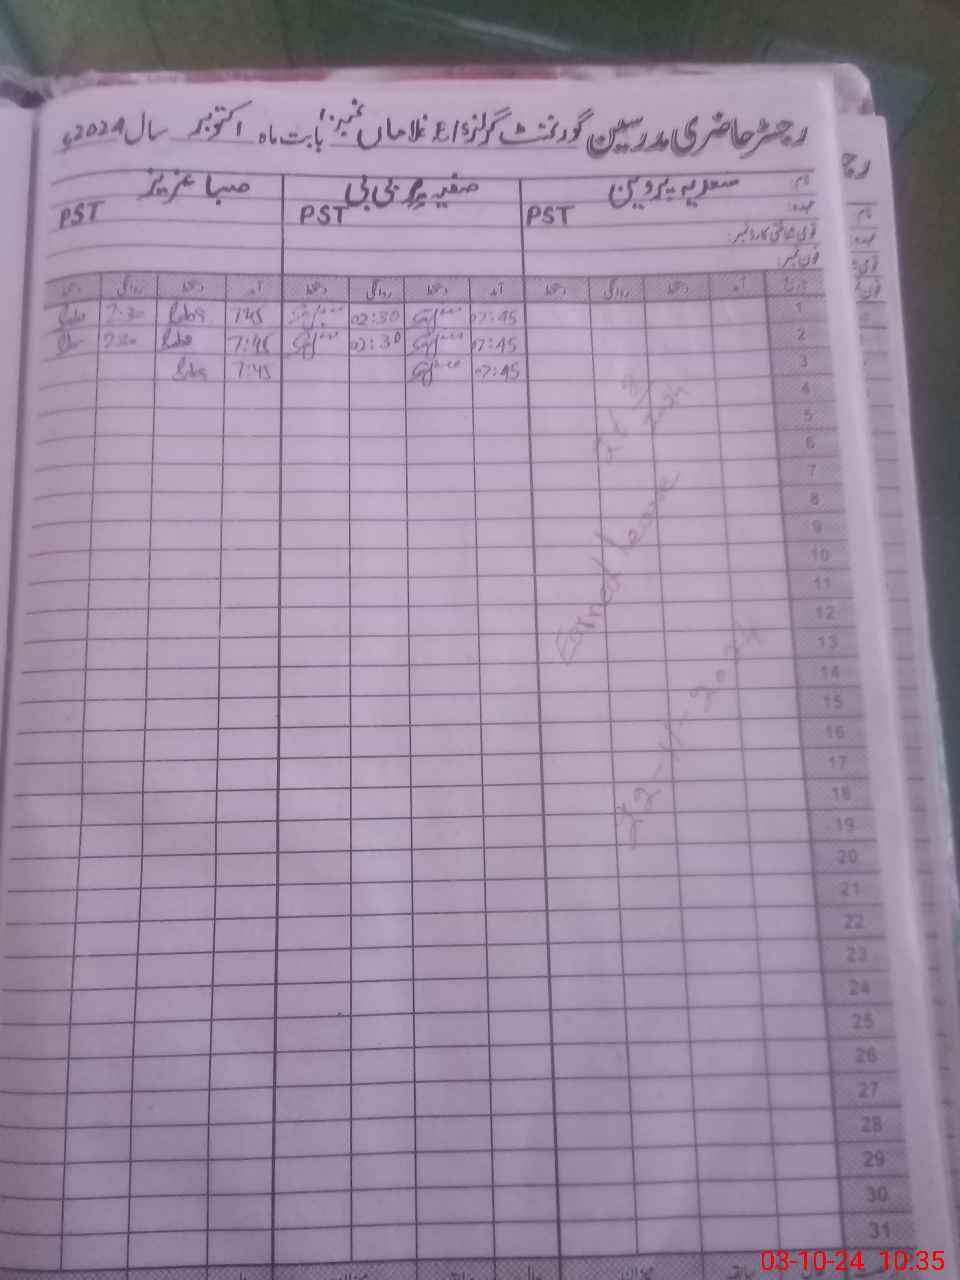 رجسٹر حاضری مدرسین گورنمنٹ گرلز غلاماں نمبر: بابت ماہ اکتوبر سال 2024ء
نام سعدیہ پروین صفیہ بی بی صبا عزیز
عہدہ: PST PST PST
قومی شناختی کارڈ نمبر:
فون نمبر:
تاریخ آمد دستخط روانگی دستخط آمد دستخط روانگی دستخط آمد دستخط روانگی دستخط
1 07:45 02:30 7:45 2:30
2 07:45 02:30 7:45 2:30
3 07:45 7:45
4
5
6
7
8
9
10
11
12
13
14
15
16
17
18
19
20
21
22
23
24
25
26
27
28
29
30
31
Earned Leave
22-11-2024
03-10-24 10:35